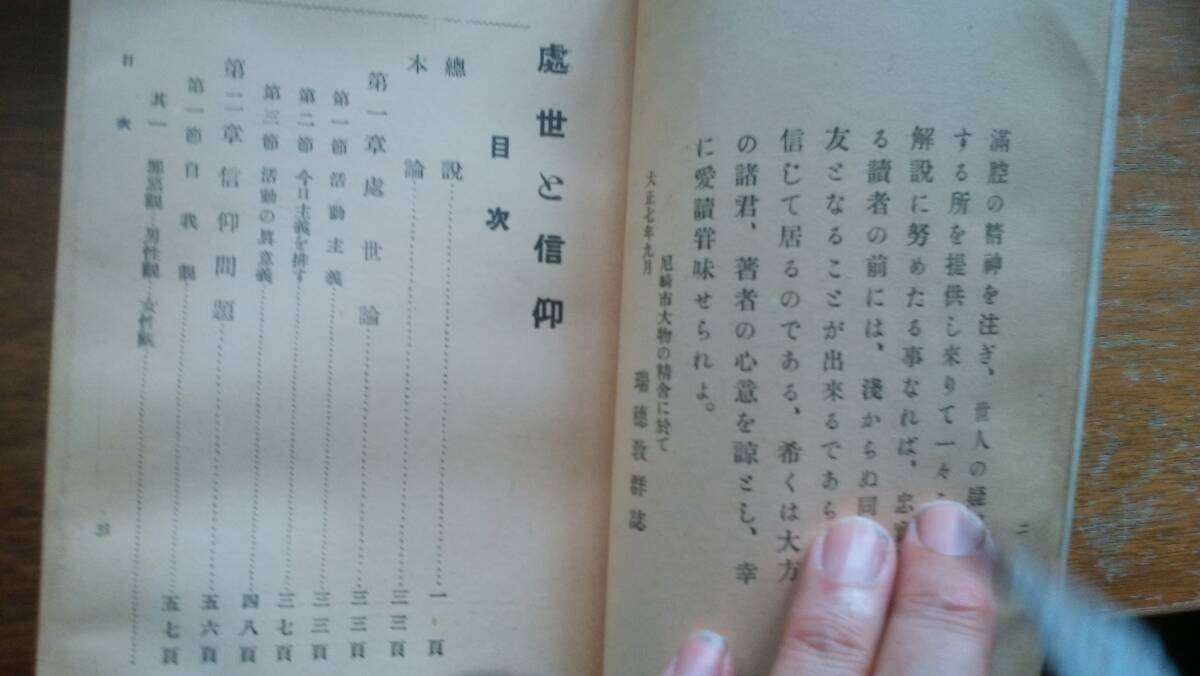 二
滿腔の精神を注ぎ、世人の
する所を提供し來りて一々
解説に努めたる事なれば、忠
る讀者の前には、淺からぬ同
友となることが出來るであら
信じて居るのである、希くは大方
の諸君、著者の心意を諒とし、幸
に愛讀甞味せられよ。
大正七年九月
尼崎市大物の精舍に於て
瑞德敎群誌
處世と信仰
目次
總說……一頁
本論……三三頁
第一章 處世論……三三頁
第一節 活動主義……三三頁
第二節 今日主義を排す……三七頁
第三節 活動の眞意義……四八頁
第二章 信仰問題……五六頁
第一節 自我觀……五七頁
其一 罪惡觀―男性觀―女性觀……
目次